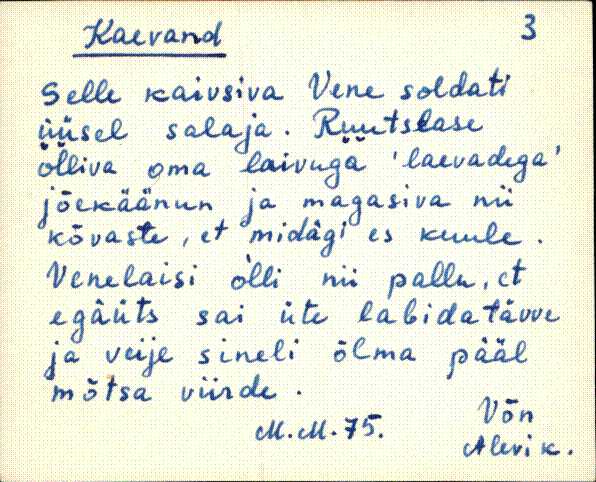 Kaevand 3
Selle kaivsiva Vene soldati
üüsel salaja. Ruutslase
õlliva oma laivuga 'laevadega'
jõekäänun ja magasiva nii
kõvaste, et midägi es kuule.
Venelaisi õlli nii pallu, et
egäüts sai üte labidatävve
ja veije sineli õlma pääl
mõtsa viirde.
M.M.75. Võn
Alevik.